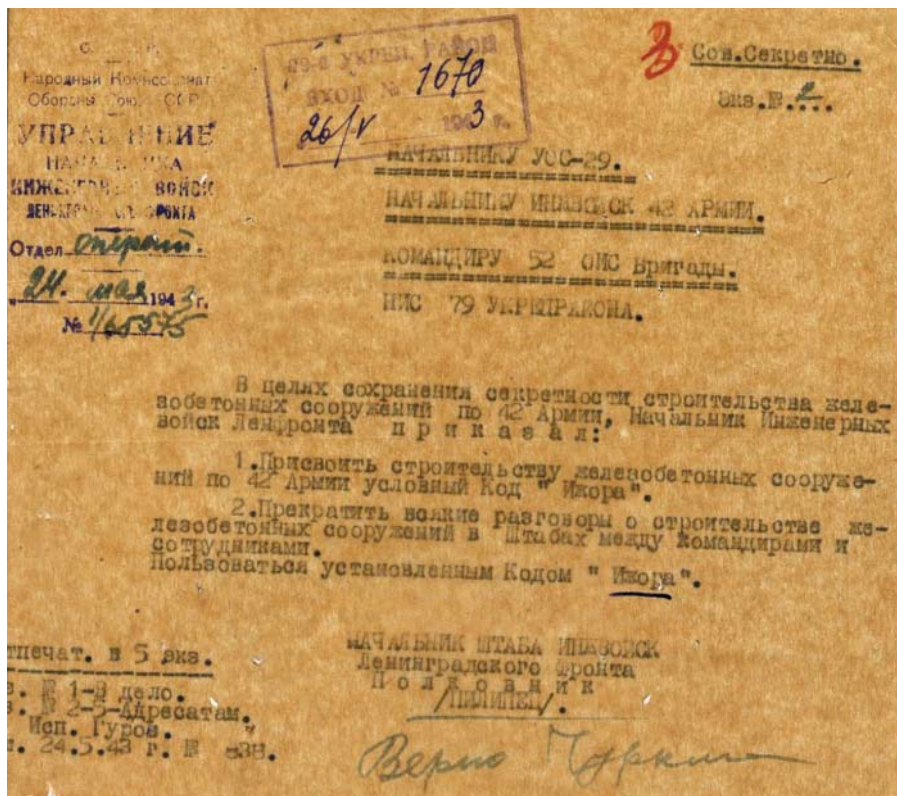 Народный Комиссариат
Обороны Союза ССР
УПРАВЛЕНИЕ
НАЧАЛЬНИКА
ИНЖЕНЕРНЫХ ВОЙСК
ЛЕНИНГРАДСКОГО ФРОНТА
Отдел операт.
"24" мая 1943 г.
№ 1/65575
79-й УКРЕП. РАЙОН
ВХОД № 1670
26/V 1943 г.
Сов.Секретно.
Экз.№ 2
НАЧАЛЬНИКУ УОС-29.
НАЧАЛЬНИКУ ИНЖВОЙСК 42 АРМИИ.
КОМАНДИРУ 52 ОИС Бригады.
НИС 79 УКРЕПРАЙОНА.
В целях сохранения секретности строительства желе-
зобетонных сооружений по 42 Армии, Начальник Инженерных
войск Ленфронта п р и к а з а л:
1.Присвоить строительству железобетонных сооруже-
ний по 42 Армии условный Код " Ижора".
2.Прекратить всякие разговоры о строительстве же-
лезобетонных сооружений в Штабах между командирами и
сотрудниками.
Пользоваться установленным Кодом " Ижора".
НАЧАЛЬНИК ШТАБА ИНЖВОЙСК
Ленинградского Фронта
П о л к о в н и к
/ПИЛИПЕЦ/.
тпечат. в 5 экз.
№ 1-В дело.
№ 2-5-Адресатам.
Исп. Гуров.
24.5.43 г. №
Верно